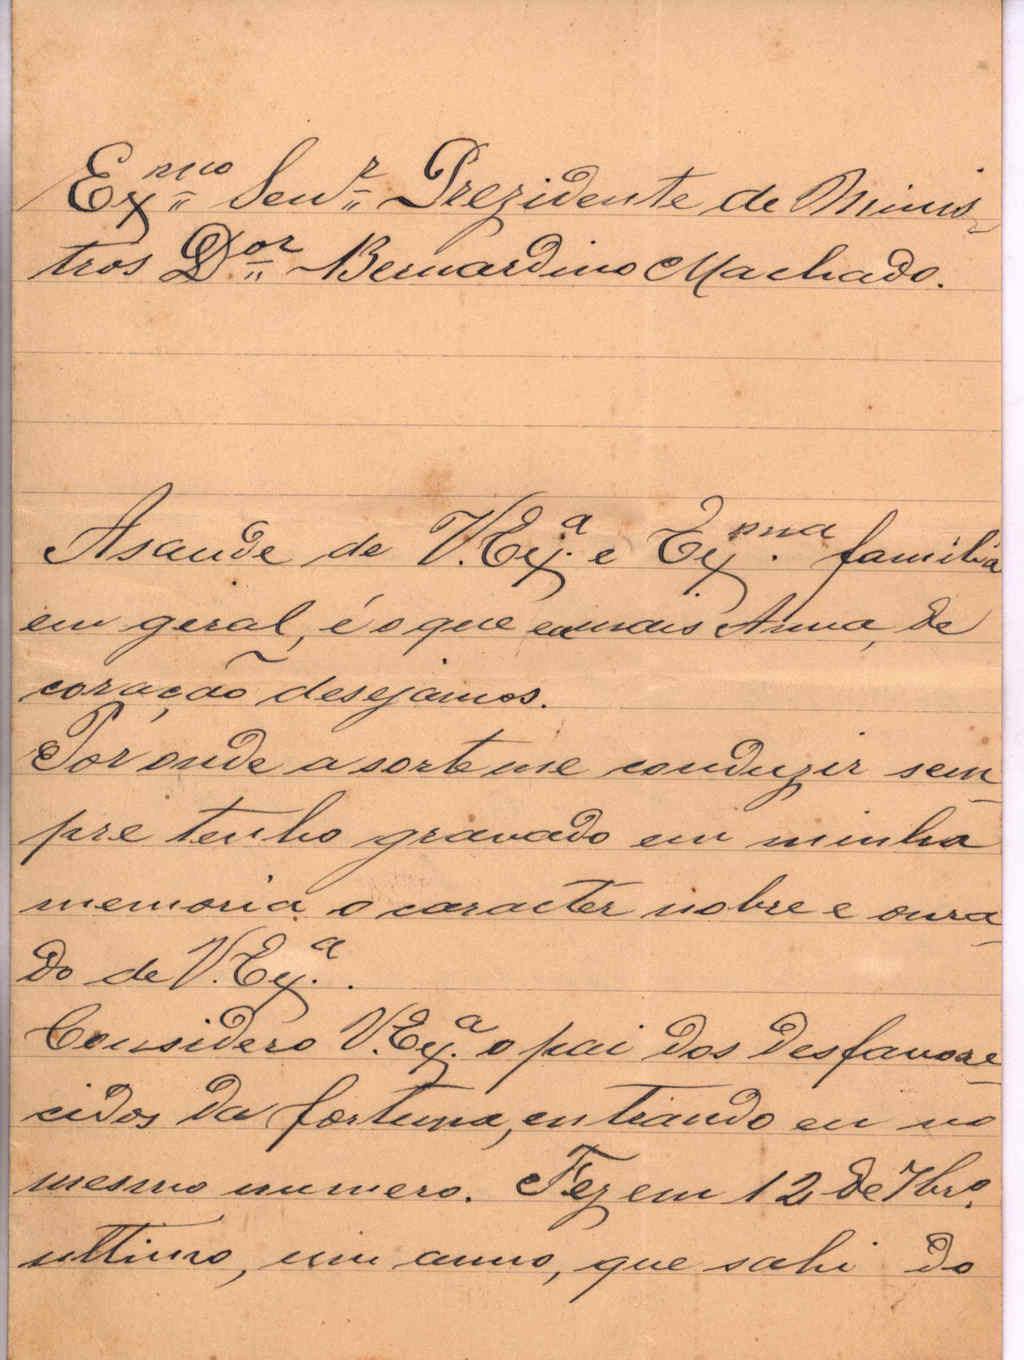 Exmo Senr Prezidente de Minis-
tros Dor Bernardino Machado.
A saude de V. Exa. e Exma. familia
em geral, é o que eu mais Anna, de
coração desejamos.
Por onde a sorte me conduzir sem-
pre tenho gravado em minha
memoria o caracter nobre e onra-
do de V. Exa..
Considero V. Exa. o pai dos desfavore-
cidos da fortuna, entrando eu no
mesmo numero. Fez em 12 de 7bro.
ultimo, um anno, que sahi do